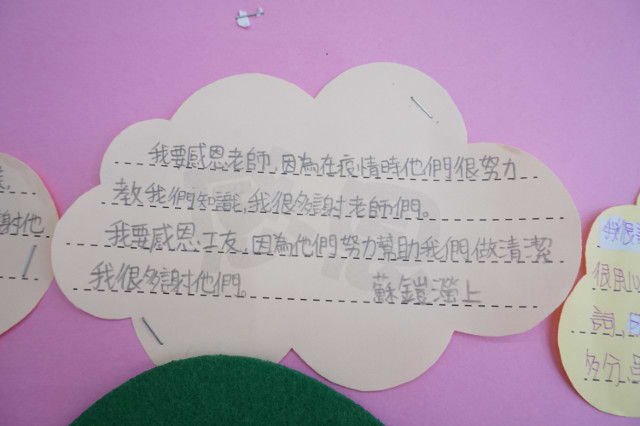 我要感恩老師,因為在疫情時他們很努力
教我們知識,我很多謝老師們。
我要感恩工友,因為他們努力幫助我們做清潔
我很多謝他們。 蘇鎧瀅上
謝他
很用心
詞
多分